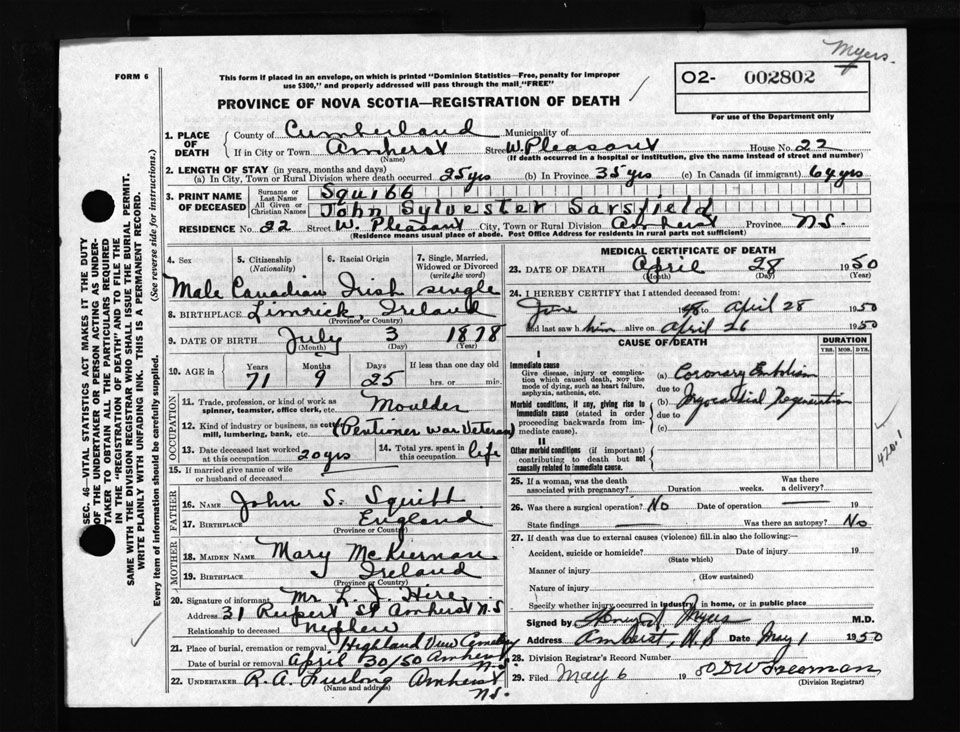 Myers.
FORM 6
This form if placed in an envelope, on which is printed "Dominion Statistics—Free, penalty for improper
use $300," and properly addressed will pass through the mail "FREE"
O2- 002802
For use of the Department only
PROVINCE OF NOVA SCOTIA—REGISTRATION OF DEATH
SEC. 46—VITAL STATISTICS ACT MAKES IT THE DUTY
OF THE UNDERTAKER OR PERSON ACTING AS UNDER-
TAKER TO OBTAIN ALL THE PARTICULARS REQUIRED
IN THE "REGISTRATION OF DEATH" AND TO FILE THE
SAME WITH THE DIVISION REGISTRAR WHO SHALL ISSUE THE BURIAL PERMIT.
WRITE PLAINLY WITH UNFADING INK. THIS IS A PERMANENT RECORD.
Every item of Information should be carefully supplied. (See reverse side for instructions.)
1. PLACE OF DEATH
County of Cumberland Municipality of
If in City or Town Amherst Street W. Pleasant House No. 22
(Name) (If death occurred in a hospital or institution, give the name instead of street and number)
2. LENGTH OF STAY (in years, months and days)
(a) In City, Town or Rural Division where death occurred 25 yrs (b) In Province 35 yrs (c) In Canada (if immigrant) 64 yrs
3. PRINT NAME OF DECEASED
Surname or Last Name Squibb
All Given or Christian Names John Sylvester Sarsfield
RESIDENCE No. 22 Street W. Pleasant City, Town or Rural Division Amherst Province N.S.
(Residence means usual place of abode. Post Office Address for residents in rural parts not sufficient)
4. Sex 5. Citizenship (Nationality) 6. Racial Origin 7. Single, Married, Widowed or Divorced (write the word)
Male Canadian Irish single
8. BIRTHPLACE Limrick, Ireland
(Province or Country)
9. DATE OF BIRTH July 3 1878
(Month) (Day) (Year)
10. AGE in Years Months Days If less than one day old
71 9 25 hrs. or min.
OCCUPATION
11. Trade, profession, or kind of work as spinner, teamster, office clerk, etc. Moulder
12. Kind of industry or business, as cotton mill, lumbering, bank, etc. (Pentioner War Veteran)
13. Date deceased last worked at this occupation 20 yrs 14. Total yrs. spent in this occupation life
15. If married give name of wife or husband of deceased
FATHER
16. NAME John S. Squibb
17. BIRTHPLACE England
(Province or Country)
MOTHER
18. MAIDEN NAME Mary McKiernan
19. BIRTHPLACE Ireland
(Province or Country)
20. Signature of informant Mr. L. J. Hire
Address 31 Rupert St Amherst N.S
Relationship to deceased Nephew
21. Place of burial, cremation or removal Highland View Cemetery
Date of burial or removal April 30/50 Amherst N.S
22. UNDERTAKER R. A. Furlong Amherst N.S.
(Name and address)
MEDICAL CERTIFICATE OF DEATH
23. DATE OF DEATH April 28 1950
(Month) (Day) (Year)
24. I HEREBY CERTIFY that I attended deceased from:
June to April 28 1950
and last saw him alive on April 26 1950
CAUSE OF DEATH DURATION
YRS. MOS. DYS.
I
Immediate cause
Give disease, injury or complication which caused death, not the mode of dying, such as heart failure, asphyxia, asthenia, etc.
(a) Coronary Embolism
due to
Morbid conditions, if any, giving rise to immediate cause (stated in order proceeding backwards from immediate cause).
(b) Myocardial Degeneration
due to
(c)
4201
II
Other morbid conditions (if important) contributing to death but not causally related to immediate cause.
25. If a woman, was the death associated with pregnancy? Duration weeks. Was there a delivery?
26. Was there a surgical operation? No Date of operation 19
State findings Was there an autopsy? No
27. If death was due to external causes (violence) fill in also the following:—
Accident, suicide or homicide? Date of injury 19
(State which)
Manner of injury
(How sustained)
Nature of injury
Specify whether injury occurred in industry, in home, or in public place
Signed by Myers M.D.
Address Amherst, N.S Date May 1 1950
28. Division Registrar's Record Number
29. Filed May 6 1950 D W Freeman
(Division Registrar)